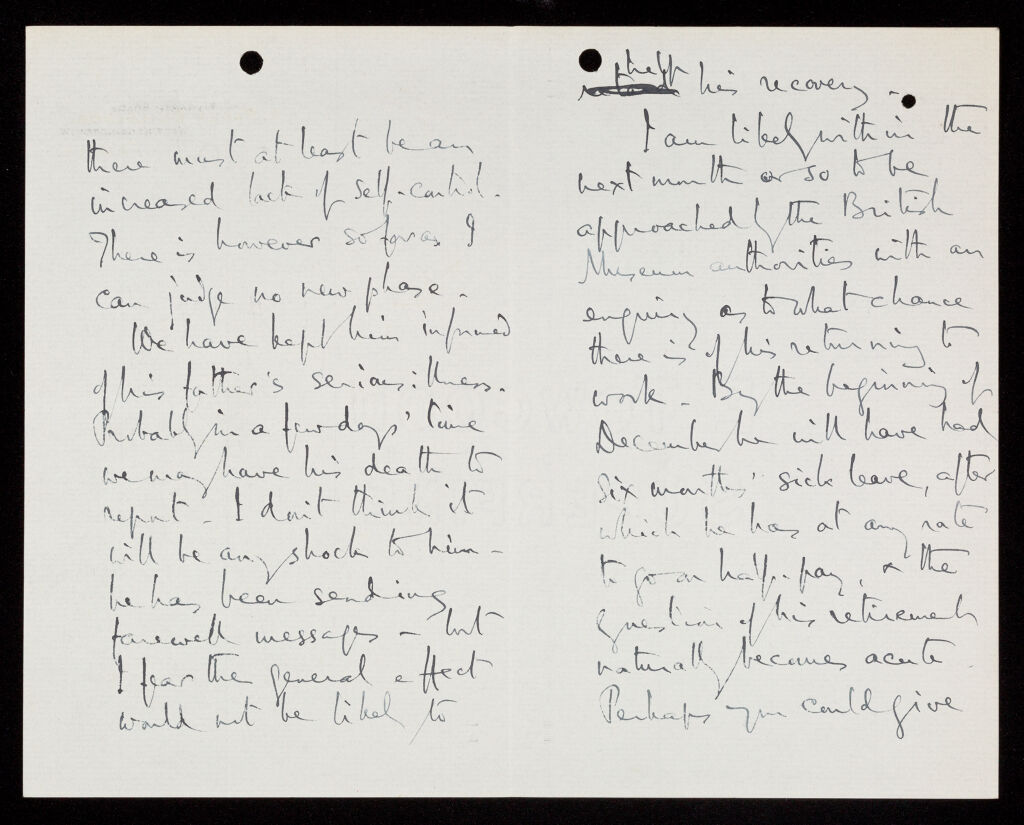 there must at least be an
increased lack of self-control.
There is however so far as I
can judge no new phase.
We have kept him informed
of his father's serious illness.
Probably in a few days' time
we may have his death to
report - I don't think it
will be any shock to him -
he has been sending
farewell messages - but
I fear the general effect
would not be likely to
help
his recovery.
I am likely within the
next month or so to be
approached by the British
Museum authorities with an
enquiry as to what chance
there is of his returning to
work - By the beginning of
December he will have had
six months' sick leave, after
which he has at any rate
to go on half-pay, & the
question of his retirement
naturally becomes acute.
Perhaps you could give